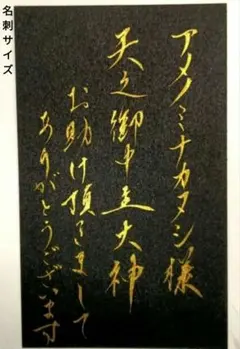 名刺サイズ
アメノミナカヌシ様
天之御中主大神
お助け頂きまして
ありがとうございます